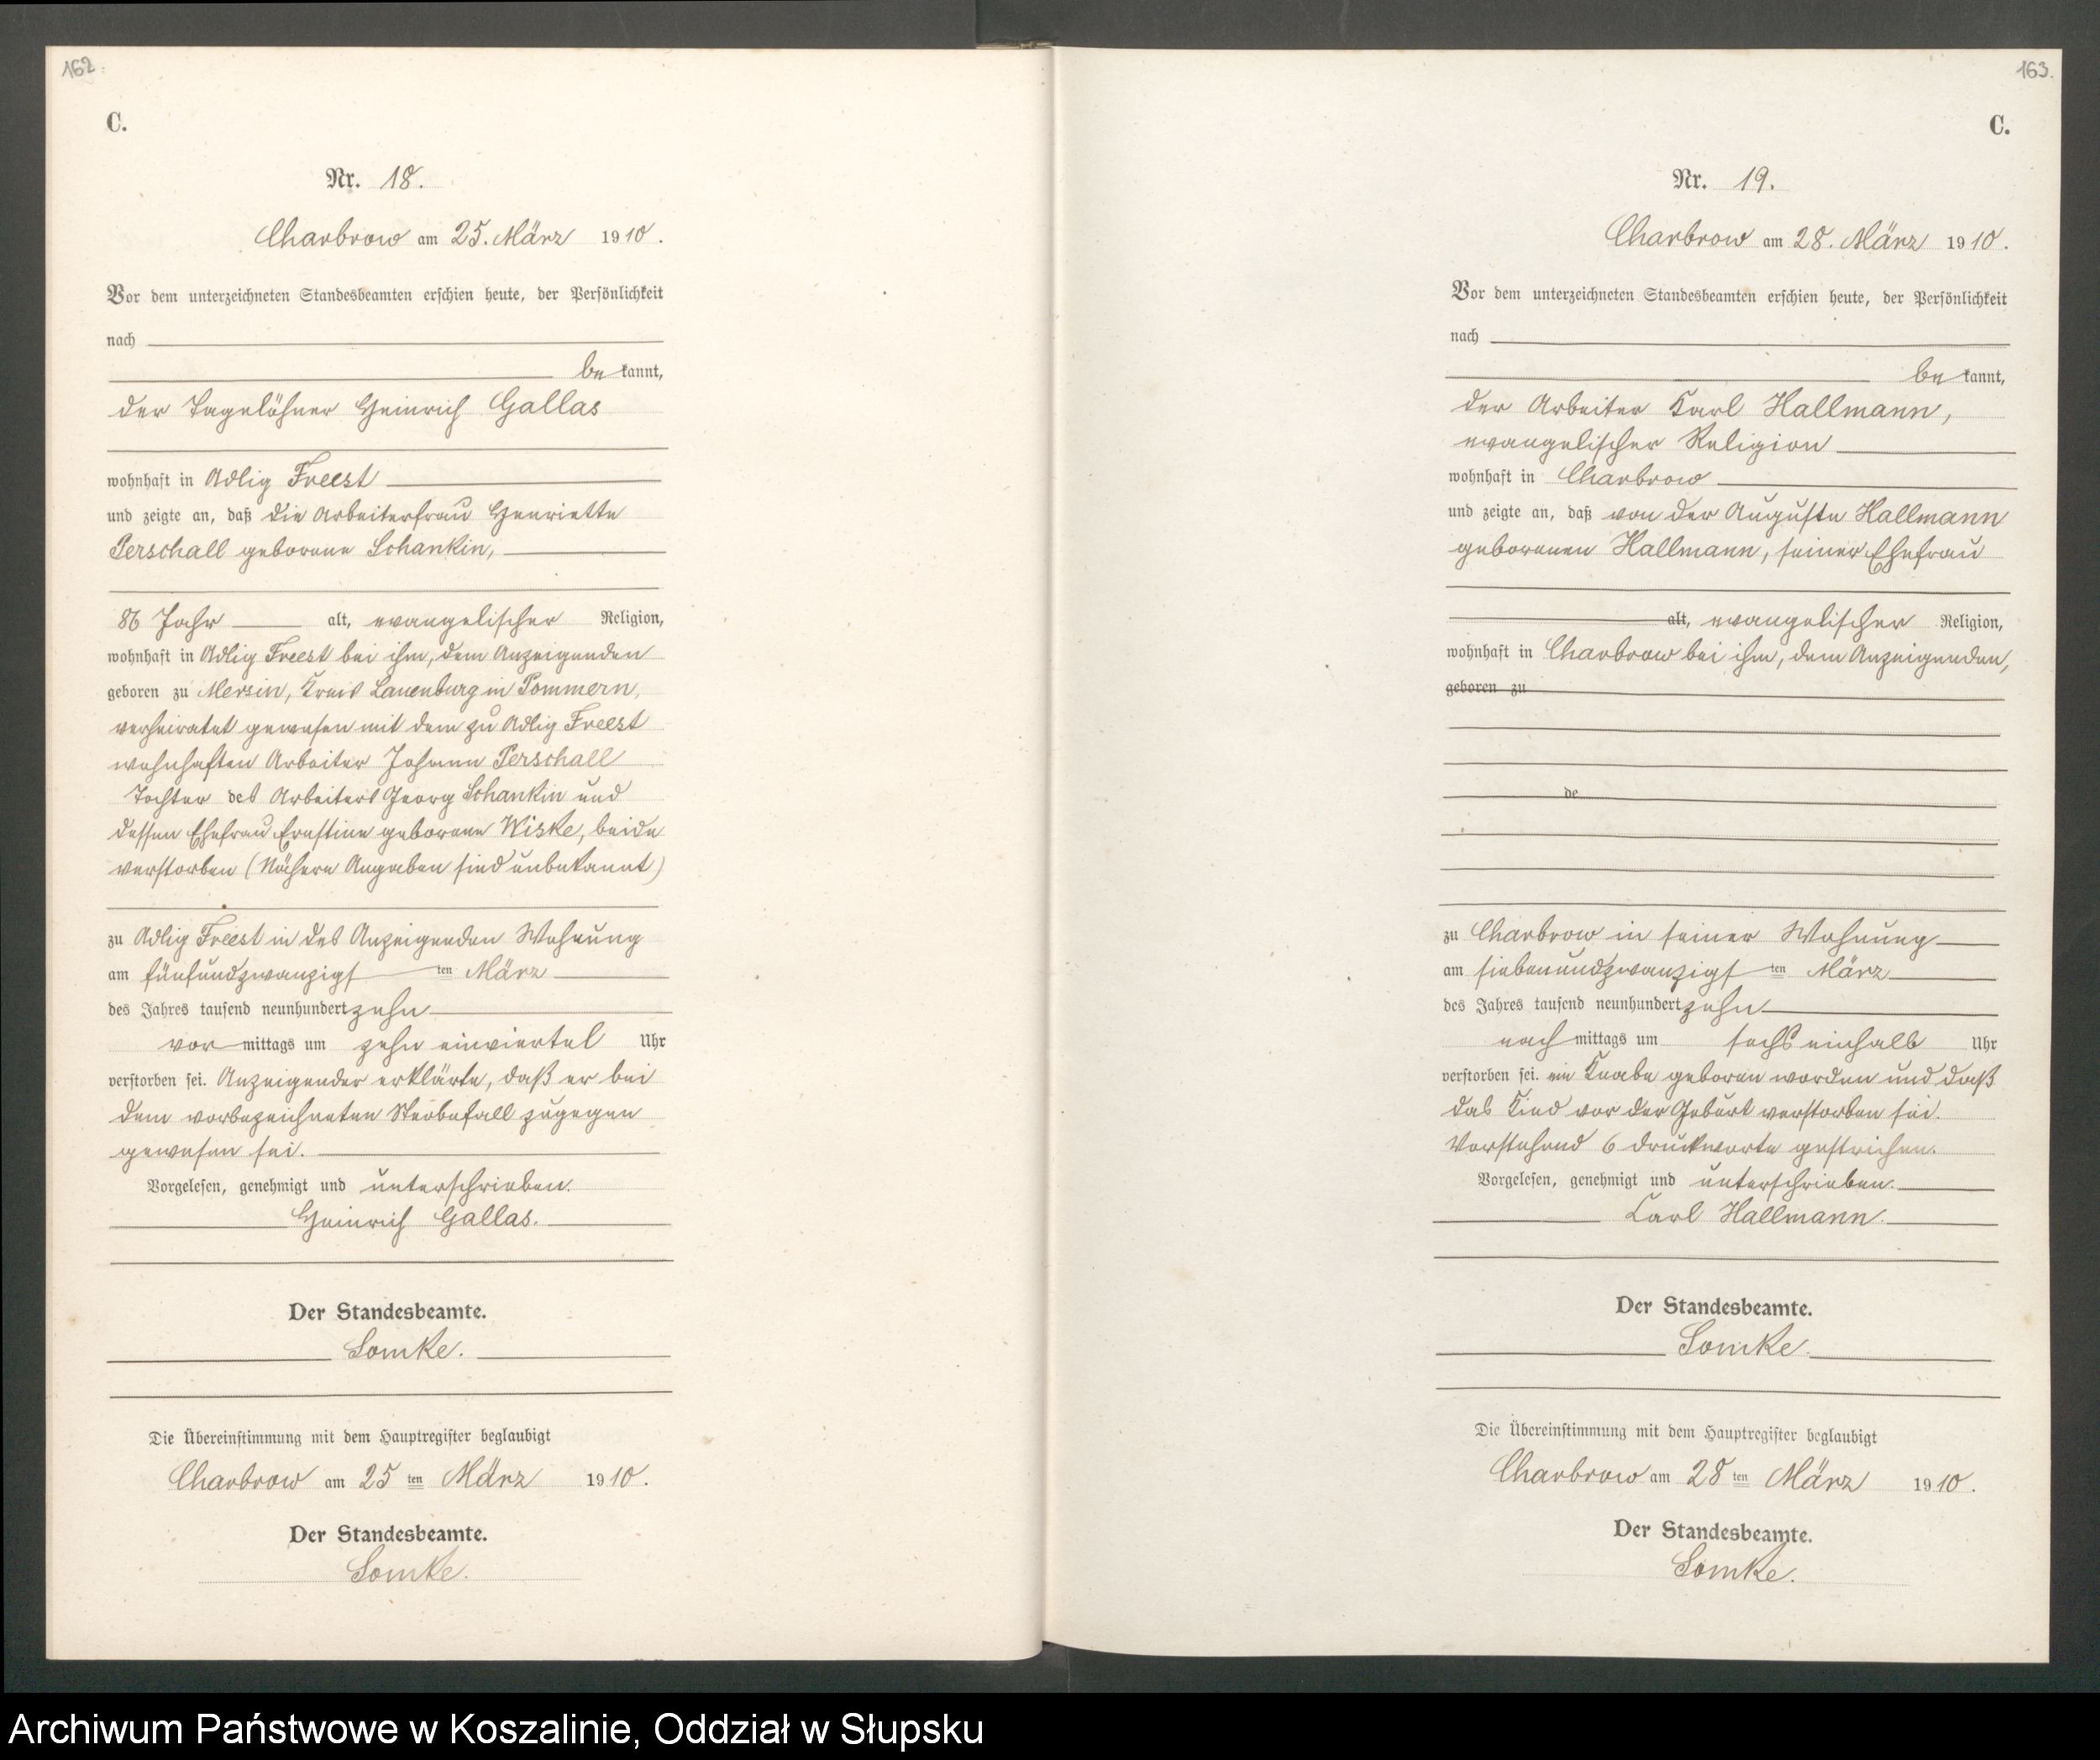 162.
C.
Nr. 18.
Charbrow am 25. März 1910.
Vor dem unterzeichneten Standesbeamten erschien heute, der Persönlichkeit
nach
be kannt,
der Tagelöhner Heinrich Gallas
wohnhaft in Adlig Freest
und zeigte an, daß die Arbeiterfrau Henriette
Perschall geborene Schankin,
86 Jahr alt, evangelischer Religion,
wohnhaft in Adlig Freest bei ihm, dem Anzeigenden
geboren zu Mersin, Kreis Lauenburg in Pommern,
verheiratet gewesen mit dem zu Adlig Freest
wohnhaften Arbeiter Johann Perschall
Tochter des Arbeiters Georg Schankin und
dessen Ehefrau Ernstine geborene Wiske, beide
verstorben (Nähere Angaben sind unbekannt)
zu Adlig Freest in des Anzeigenden Wohnung
am fünfundzwanzigs ten März
des Jahres tausend neunhundert zehn
vor mittags um zehn einviertel Uhr
verstorben sei. Anzeigender erklärte, daß er bei
dem vorbezeichneten Sterbefall zugegen
gewesen sei.
Vorgelesen, genehmigt und unterschrieben.
Heinrich Gallas.
Der Standesbeamte.
Somke.
Die Übereinstimmung mit dem Hauptregister beglaubigt
Charbrow am 25 ten März 1910.
Der Standesbeamte.
Somke.
163.
C.
Nr. 19.
Charbrow am 28. März 1910.
Vor dem unterzeichneten Standesbeamten erschien heute, der Persönlichkeit
nach
be kannt,
der Arbeiter Karl Hallmann,
evangelischer Religion
wohnhaft in Charbrow
und zeigte an, daß von der Auguste Hallmann
geborenen Hallmann, seiner Ehefrau
alt, evangelischer Religion,
wohnhaft in Charbrow bei ihm, dem Anzeigenden,
geboren zu
de
zu Charbrow in seiner Wohnung
am siebenundzwanzigs ten März
des Jahres tausend neunhundert zehn
nach mittags um sechs einhalb Uhr
verstorben sei. ein Knabe geboren worden und daß
das Kind vor der Geburt verstorben sei.
Vorstehend 6 Druckworte gestrichen.
Vorgelesen, genehmigt und unterschrieben.
Carl Hallmann.
Der Standesbeamte.
Somke.
Die Übereinstimmung mit dem Hauptregister beglaubigt
Charbrow am 28 ten März 1910.
Der Standesbeamte.
Somke.
Archiwum Państwowe w Koszalinie, Oddział w Słupsku